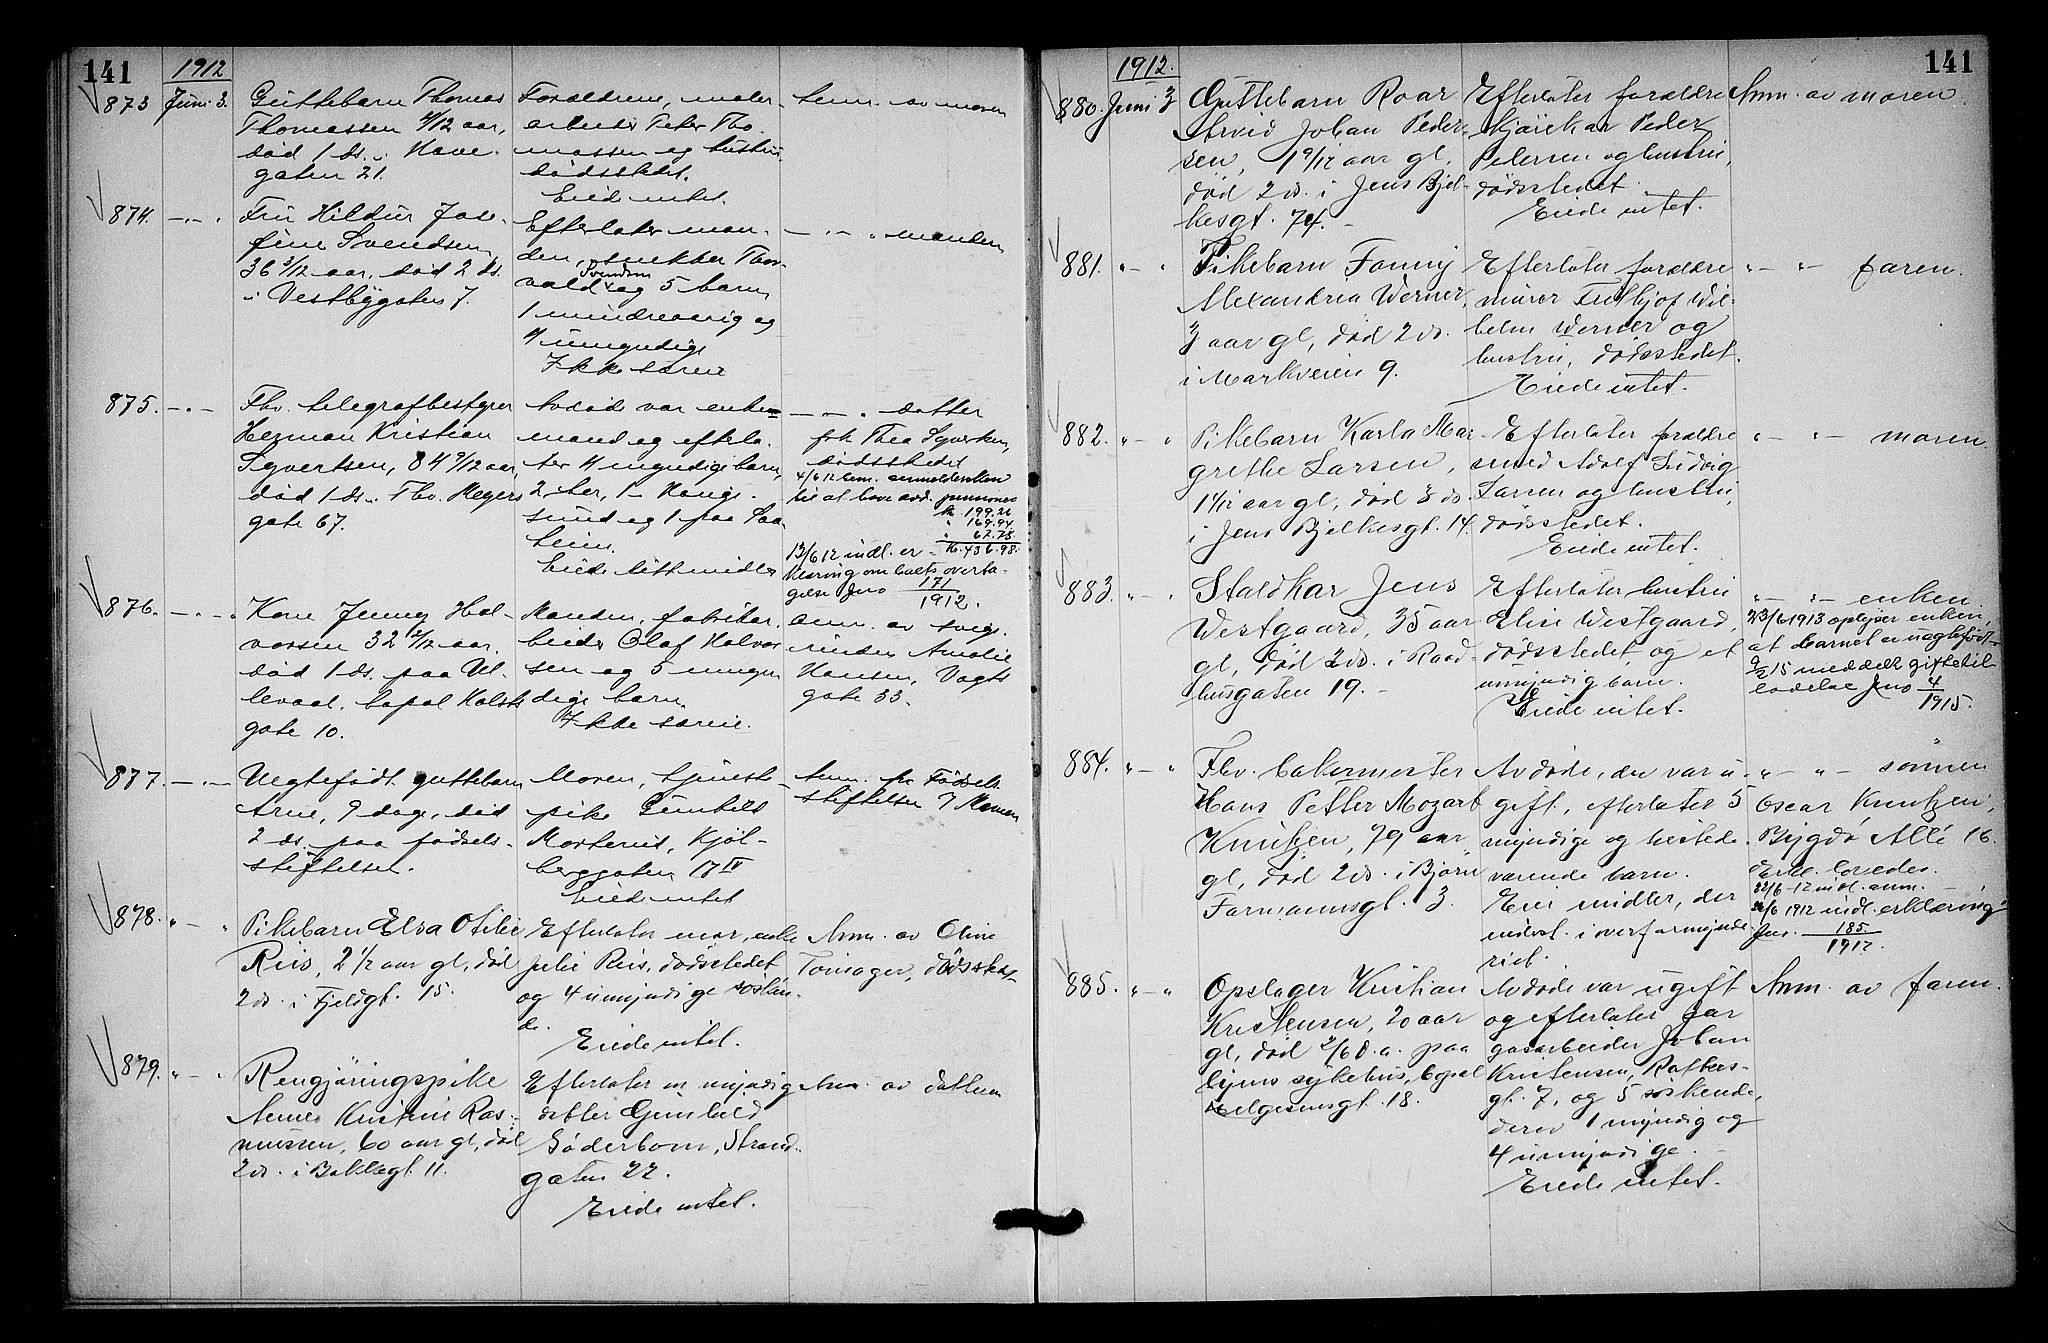 141
1912
873 Juni 3.
Guttebarn Thomas
Thomassen 4/12 aar,
død 1 ds. i Have-
gaten 21.
Forældrene, maler-
arbeider Peter Tho-
massen og hustru
dødsstedet.
Eiede intet.
Anm. av moren
874. — " —
Fru Hildur Jose-
fine Svendsen,
36 3/12 aar, død 2 ds.
i Vestbygaten 7.
Efterlater man-
den, snekker Thor-
vald Svendsen og 5 barn,
1 mindreaarig og
4 umyndige
Ikke særeie
— " — " manden
875. — " —
Fhv. telegrafbestyrer
Herman Kristian
Syvertsen, 84 9/12 aar,
død 1 ds. i Thv. Meyers
gate 67.
Avdøde var enke-
mand og efterla-
ter 4 myndige barn,
2 her, 1 i Kongs-
sund og 1 paa
Eiede litt midler
— " — " datter
frk Thea Syvertsen,
dødsstedet
4/6 12 anm.
til at heve avd. pensioner
kr 199.26
" 169.94
" 67.78
kr. 436.98.
13/6 12 indl. er-
klæring om boets overta-
gelse Jno 171/1912.
876. — " — "
Kone Jenny Hal-
vorsen 32 2/12 aar.
død 1 ds. paa Ul-
levaal, bopæl Holsts
gate 10.
Manden, fabrikar-
beider Olaf Halvor-
sen og 5 umyn-
dige barn.
Ikke særeie.
anm. av svig-
erinden Amalie
Hansen, Vogts
gate 33.
877. — " —
Uegtefødt guttebarn
Arne, 9 dage, død
2 ds. paa fødsels-
stiftelsen.
Moren, tjeneste-
pike Gunhild
Morterud, Kjøl-
berggaten 17 IV
Eiede intet
Anm. fra Fødsels
stiftelsen
878. " — "
Pikebarn Elsa Otilie
Riis, 2 1/2 aar gl, død
2 ds. i Fjeldgt. 15.
Efterlater mor, enke
Julie Riis, dødsstedet
og 4 umyndige søsken-
de.
Eiede intet.
Anm. av Oline
Tomager, dødsstedet
879. " — "
Rengjøringspike
Anne Kristine Ras-
mussen, 60 aar gl, død
2 ds. i Bakkegt 11.
Efterlater en myndig
datter Gunhild
Søderbom, Strand-
gaten 22.
Eiede intet.
Anm. av datteren
141
1912.
880. Juni 3
Guttebarn Roar
Arvid Johan Peder-
sen, 1 9/12 aar gl.
død 2 ds. i Jens Bjel-
kesgt. 74.
Efterlater forældre
kjørekar Peder
Pedersen og hustru,
dødsstedet.
Eiede intet.
Anm. av moren
881. " — "
Pikebarn Fanny
Alexandria Werner,
3 aar gl, død 2 ds.
i Markveien 9.
Efterlater forældre
murer Fridthjof Wil-
helm Werner og
hustru, dødsstedet.
Eiede intet.
" — " — faren.
882. " — "
Pikebarn Karla Mar-
grethe Larsen,
1 4/12 aar gl, død 3 ds.
i Jens Bjelkesgt. 14.
Efterlater forældre
smed Adolf Ludvig
Larsen og hustru,
dødsstedet.
Eiede intet.
" — " — moren.
883. " — "
Staldkar Jens
Westgaard, 35 aar
gl, død 2 ds. i Raad-
husgaten 19. –
Efterlater hustru
Elise Westgaard,
dødsstedet og et
umyndig barn.
Eiede intet.
" — " — enken.
23/6 1913 oplyser enken,
at barnet er uægtefødt –
9/2 15 meddelt giftetil-
ladelse Jno 4/1915.
884. " — "
Fhv. bakermester
Hans Petter Mozart
Knutzen, 79 aar
gl, død 2 ds. i Bjørn
Farmannsgt. 3.
Avdøde, der var u-
gift, efterlater 5
myndige og tilstede-
værende barn.
Eier midler, der
indest. i overformynde-
riet.
" — " — sønnen
Oscar Knutzen,
Bygdø Allé 16.
Erkl. lovedes.
22/6-12 indl. anm.
26/6 1912 indl. erklæring
Jno. 185/1912.
885. " — "
Opslager Kristian
Kristensen, 20 aar
gl, død 2/6 d.a. paa
byens sykehus, bopæl
Helgesensgt. 18.
Avdøde var ugift
og efterlater far
gasarbeider Johan
Kristensen, Rathkes-
gt. 7, og 5 søskende,
derav 1 myndig og
4 umyndige. –
Eiede intet.
Anm. av faren.